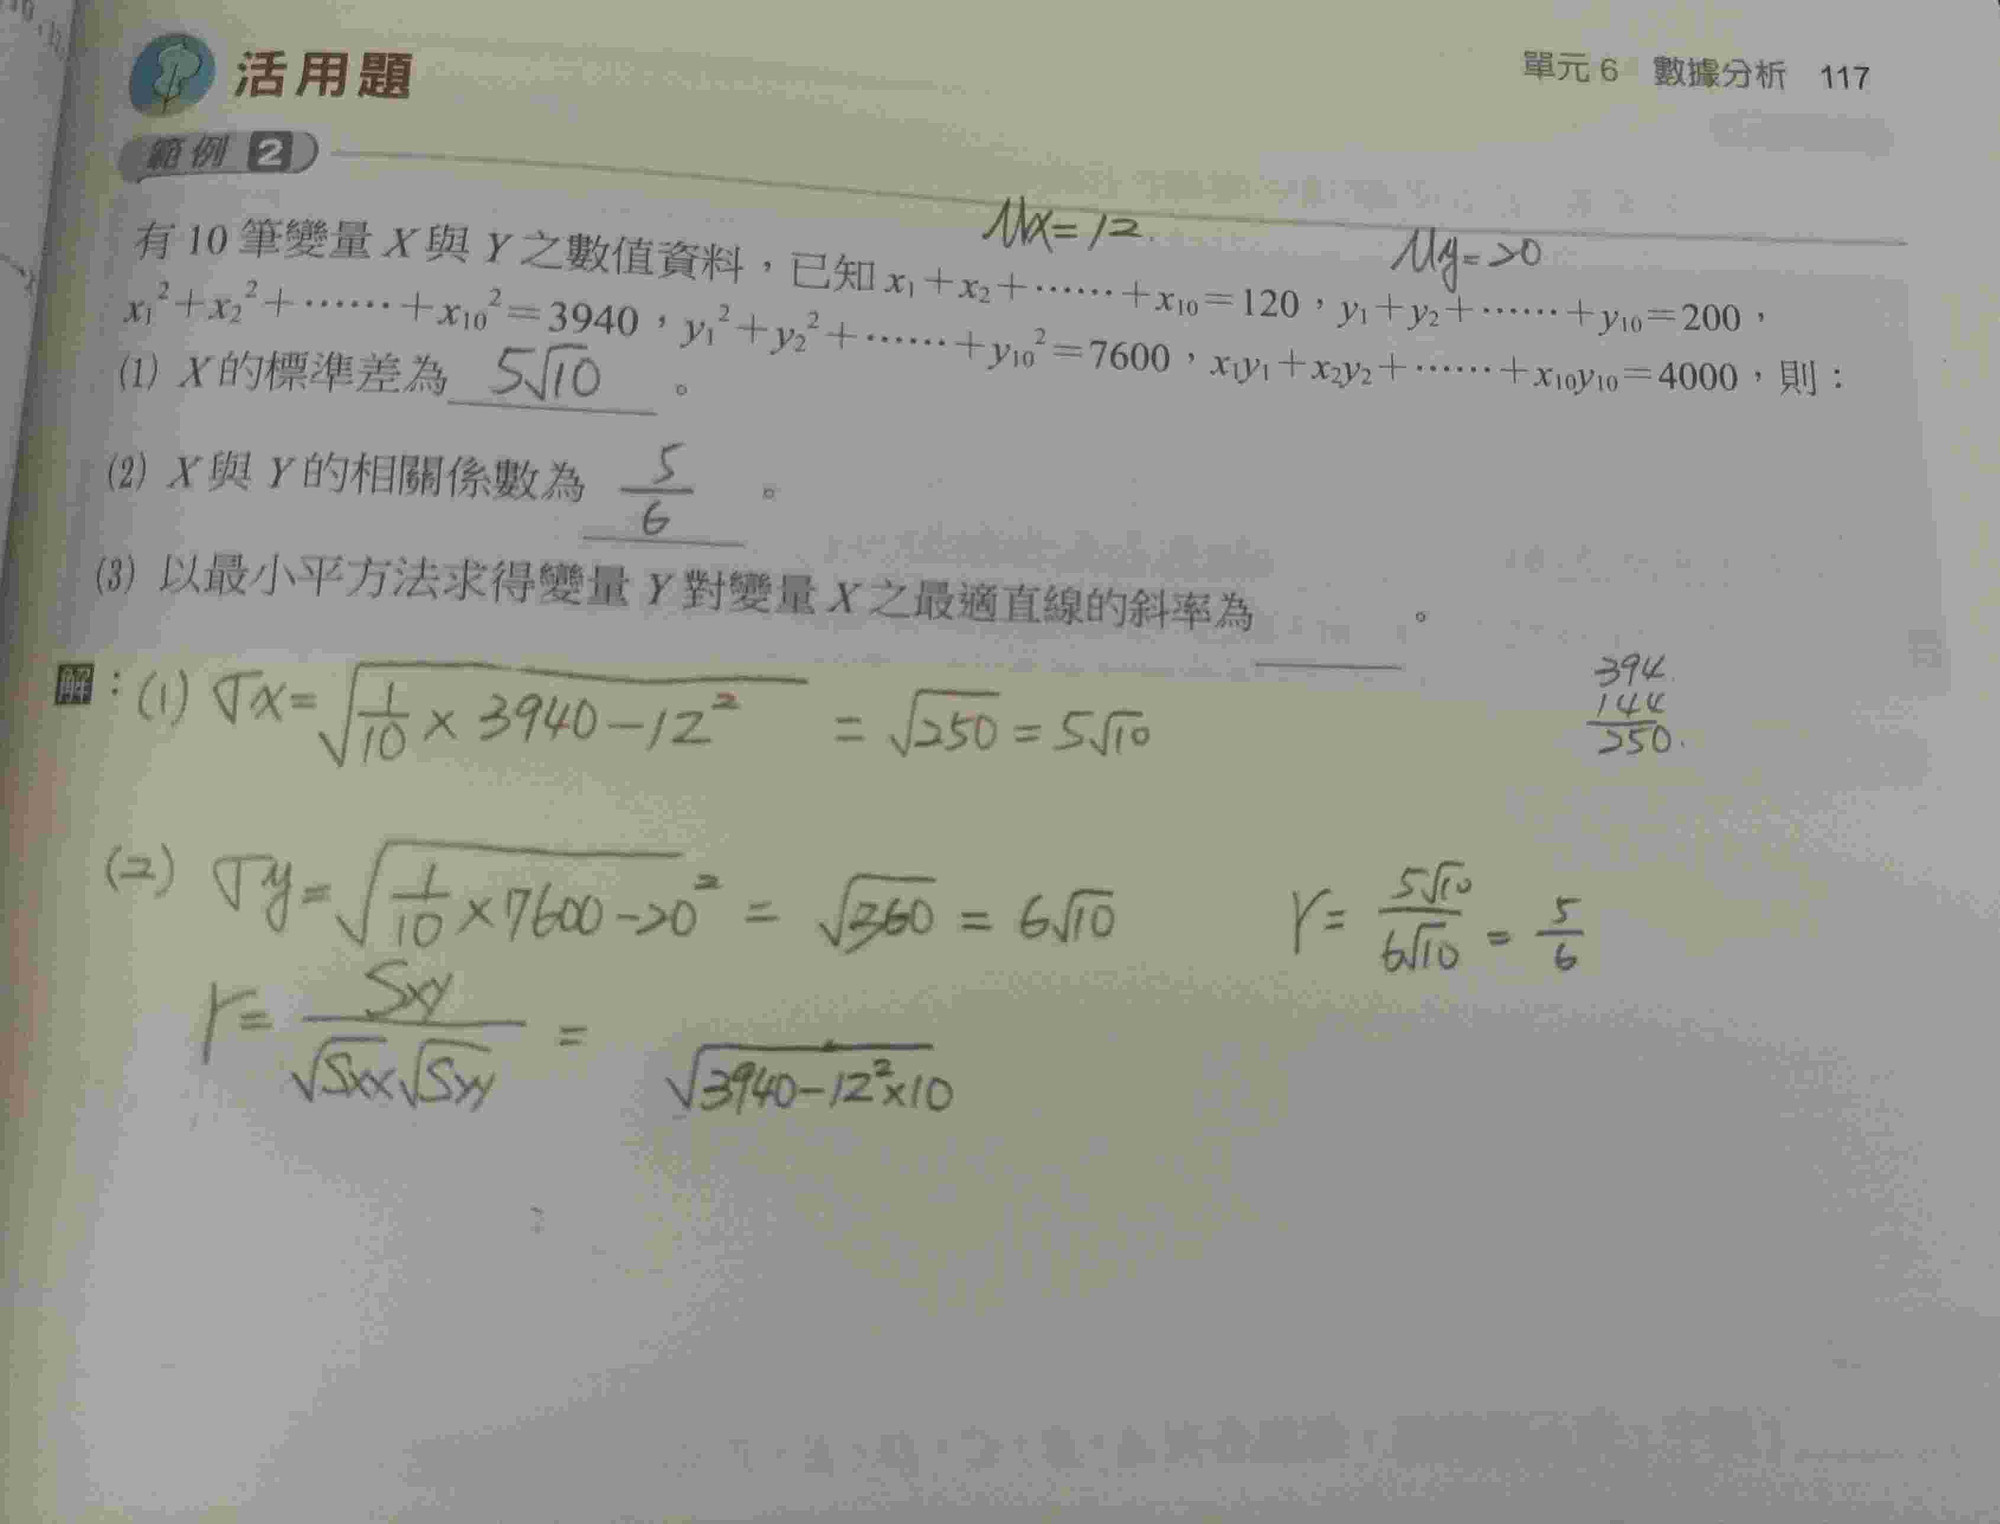 活用題
單元 6 數據分析 117
範例 2
μx=12
μy=20
有 10 筆變量 X 與 Y 之數值資料，已知 x₁＋x₂＋……＋x₁₀＝120，y₁＋y₂＋……＋y₁₀＝200，
x₁²＋x₂²＋……＋x₁₀²＝3940，y₁²＋y₂²＋……＋y₁₀²＝7600，x₁y₁＋x₂y₂＋……＋x₁₀y₁₀＝4000，則：
(1) X 的標準差為 5√10 。
(2) X 與 Y 的相關係數為 5/6 。
(3) 以最小平方法求得變量 Y 對變量 X 之最適直線的斜率為 。
解：(1) σx=√(1/10 × 3940−12²) = √250 = 5√10
394
144
250
(2) σy=√(1/10 ×7600−20²) = √360 = 6√10
r= 5√10/6√10 = 5/6
r= Sxy/√Sxx√Syy =
√(3940−12²×10)